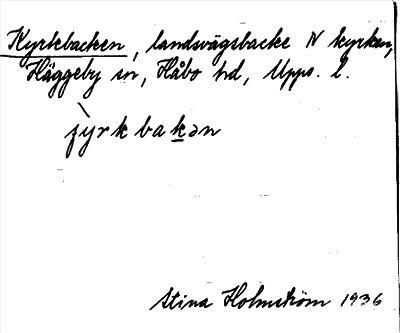 Kyrkbacken, landsvägsbacke N kyrkan,
Häggeby sn, Håbo hd, Upps. l.
jy̓rkbakən
Stina Holmström 1936